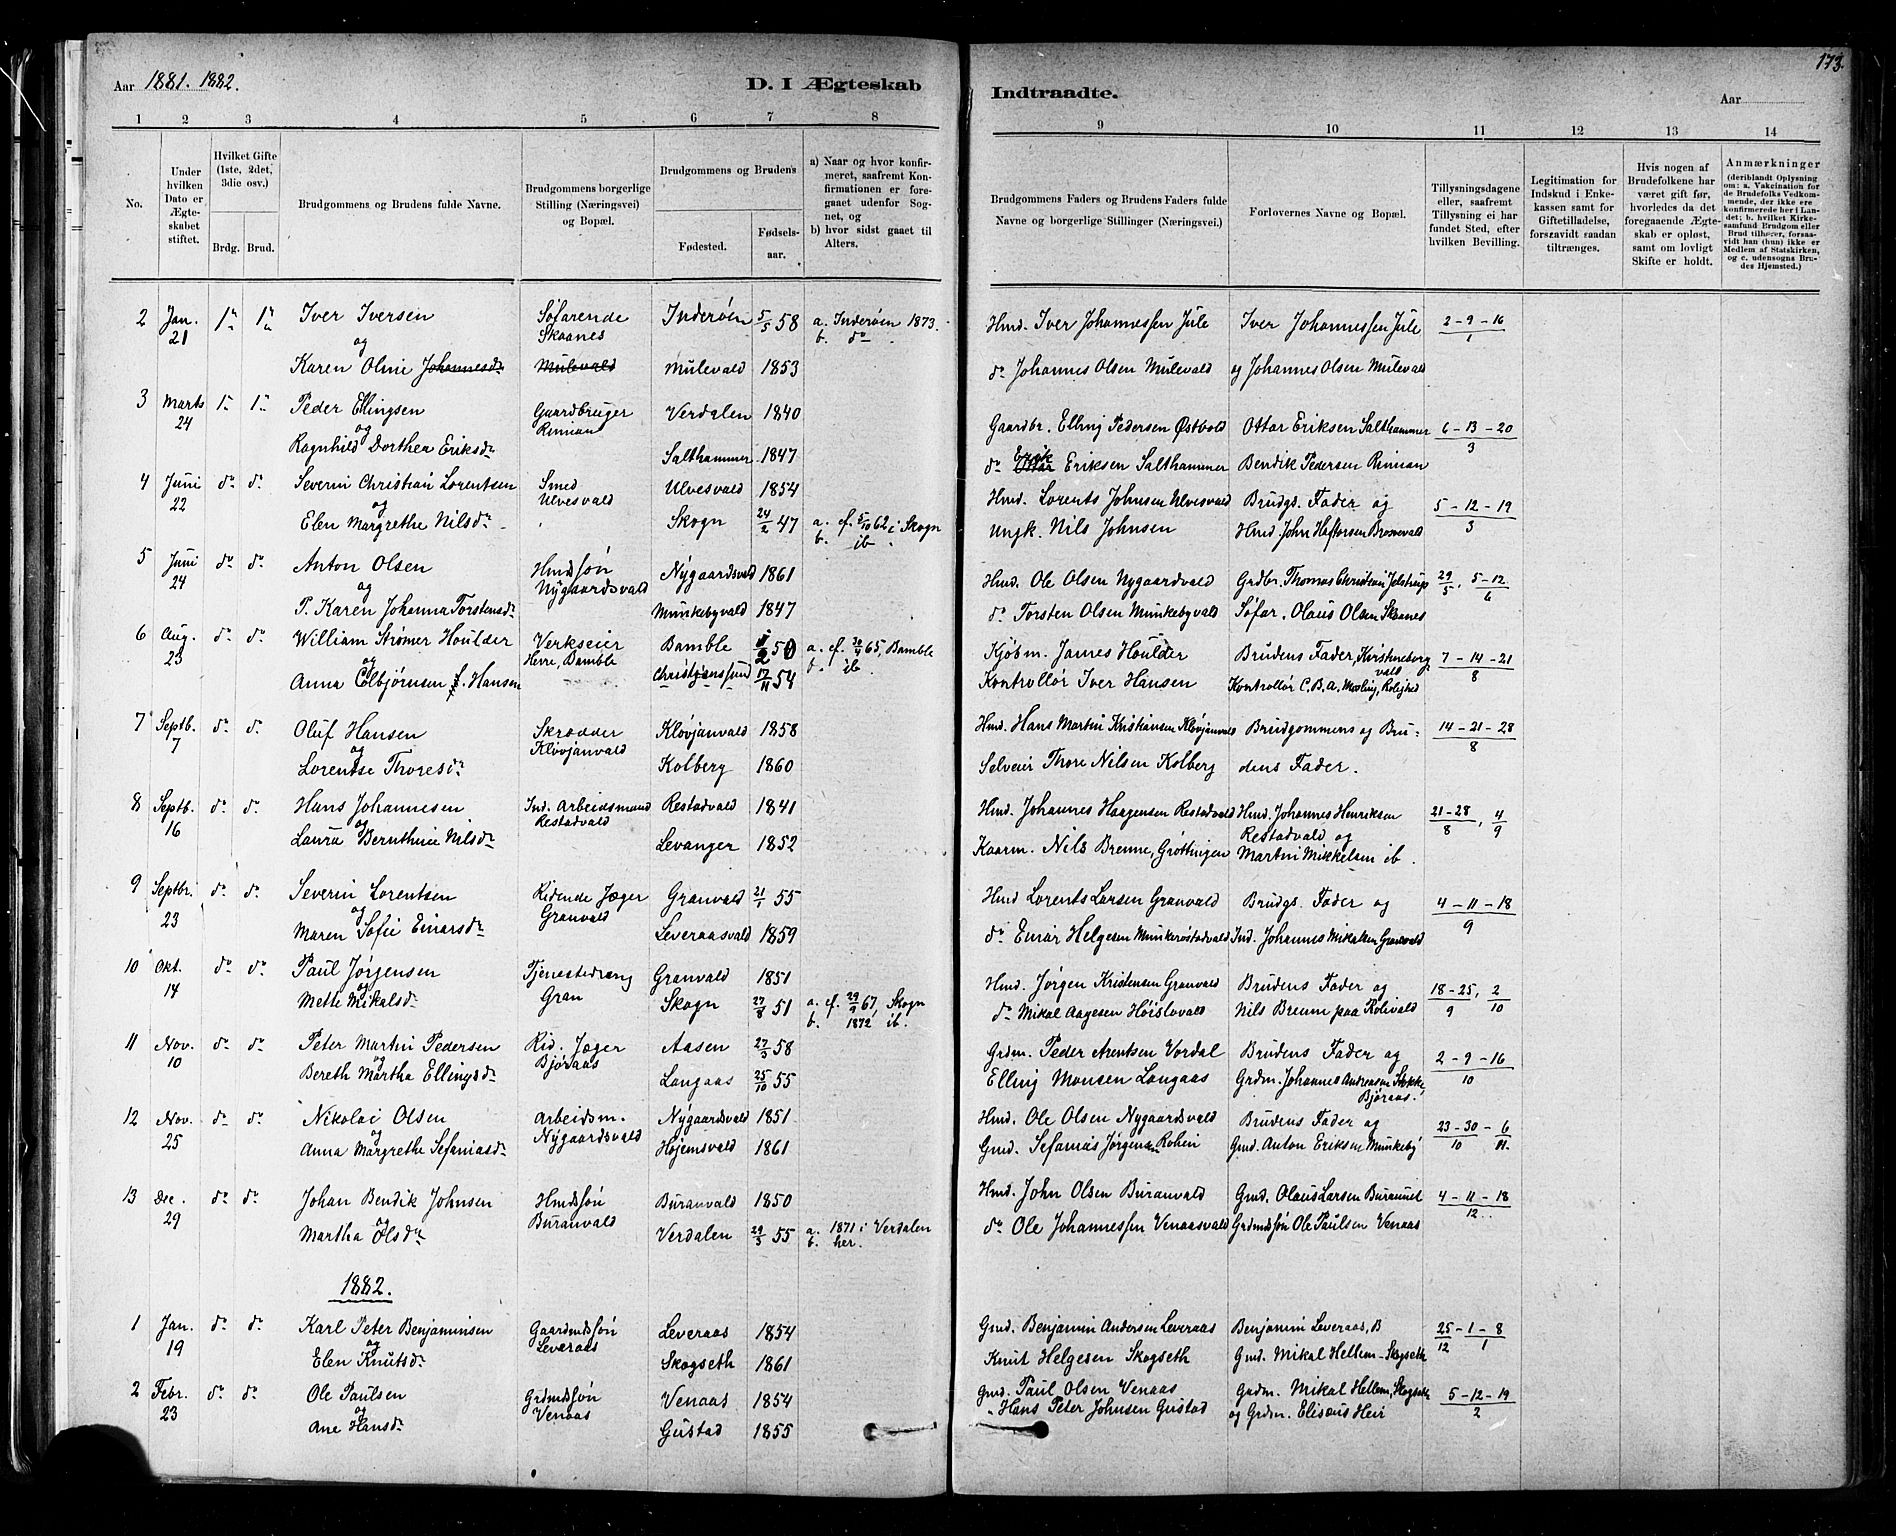 Aar 1881. 1882.
D. I Ægteskab
Indtraadte.
173.
Aar
1 2 3 4 5 6 7 8 9 10 11 12 13 14
No.
Under hvilken Dato er Ægteskabet stiftet.
Hvilket Gifte (1ste, 2det, 3die osv.)
Brdg. Brud.
Brudgommens og Brudens fulde Navne.
Brudgommens borgerlige Stilling (Næringsvei) og Bopæl.
Brudgommens og Brudens
Fødested. Fødselsaar.
a) Naar og hvor konfirmeret, saafremt Konfirmationen er foregaaet udenfor Sognet, og
b) hvor sidst gaaet til Alters.
Brudgommens Faders og Brudens Faders fulde Navne og borgerlige Stillinger (Næringsvei.)
Forlovernes Navne og Bopæl.
Tillysningsdagene eller, saafremt Tillysning ei har fundet Sted, efter hvilken Bevilling.
Legitimation for Indskud i Enkekassen samt for Giftetilladelse, forsaavidt saadan tiltrænges.
Hvis nogen af Brudefolkene har været gift før, hvorledes da det foregaaende Ægteskab er opløst, samt om lovligt Skifte er holdt.
Anmærkninger (deriblandt Oplysning om: a. Vakcination for de Brudefolks Vedkommende, der ikke ere konfirmerede her i Landet; b. hvilket Kirkesamfund Brudgom eller Brud tilhører, forsaavidt han (hun) ikke er Medlem af Statskirken, og c. udensogns Brudes Hjemsted.)
2 Jan. 21 1ste 1ste Iver Iversen Søfarende Skaanes Inderøen 5/5 58 a. Inderøen 1873. b. do Hmd. Iver Johannessen Jule Iver Johannessen Jule 2-9-16/1
og
Karen Oline Johannesdr Mulevald Mulevald 1853 do Johannes Olsen Mulevald og Johannes Olsen Mulevald
3 Marts 24 1ste 1ste Peder Ellingsen Gaardbruger Rinnan Verdalen 1840 Gaardbr. Elling Pedersen Østvold Ottar Eriksen Salthammer 6-13-20/3
og
Ragnhild Dorthea Eriksdr Salthammer 1847 do Erik Ottar Eriksen Salthammer Bendik Pedersen Rinnan
4 Juni 22 do do Severin Christian Lorentsen Smed Ulvesvald Ulvesvald 1854 Hmd. Lorents Johnsen Ulvesvald Brudgs. Fader og 5-12-19/3
og
Elen Margrethe Nilsdr Skogn 24/2 47 a. cf. 5/10 62 i Skogn b. ib Ungk. Nils Johnsen Hmd. John Haftorsen Bromevald
5 Juni 24 do do Anton Olsen Hmdssøn Nygaardsvald Nygaardsvald 1861 Hmd. Ole Olsen Nygaardvald Grdbr. Thomas Christian Jelstrup 29/5, 5-12/6
og
P. Karen Johanna Torstensdr Munkebyvald 1847 do Torsten Olsen Munkebyvald Søfar. Olaus Olsen Skaanes
6 Aug. 23 do do William Strømer Houlder Verkseier Herre, Bamble Bamble 1/2 50 a. cf. 30/4 65, Bamble b. ib. Kjøbm. James Houlder Brudens Fader, Kirsteneborgvald 7-14-21/8
og
Anna Colbjørnsen f. Hansen Christianssund 17/11 54 Kontrollør Iver Hansen Kontrollør C. B. A. Mosling, Rolighed
7 Septb. 7 do do Oluf Hansen Skrædder Kløvjanvald Kløvjanvald 1858 Hmd. Hans Martin Kristiansen Kløvjanvald Brudgommens og Bru- 14-21-28/8
og
Lorentse Thoresdr Kolberg 1860 Selveier Thore Nilsen Kolberg dens Fader.
8 Septb. 16 do do Hans Johannesen Ind. Arbeidsmand Restadvald Restadvald 1841 Hmd. Johannes Haagensen Restadvald Hmd. Johannes Henriksen Restadvald og 21-28/8, 4/9
og
Laura Bernthine Nilsdr Levanger 1852 Kaarm. Nils Brenne, Grøttingen Martin Mikkelsen ib.
9 Septbr. 23 do do Severin Lorentsen Ridende Jæger Granvald Granvald 21/1 55 Hmd Lorents Larsen Granvald Brudgs. Fader og 4-11-18/9
og
Maren Sofie Einarsdr Leveraasvald 1859 do Einar Helgesen Munkerøstadvald Ind. Johannes Mikalsen Granvald
10 Okt. 14 do do Paul Jørgensen Tjenestedreng Gran Granvald 1851 Hmd. Jørgen Kristensen Granvald Brudens Fader og 18-25/9, 2/10
og
Mette Mikalsdr Skogn 27/8 51 a. cf. 29/9 67, Skogn b. 1872 ib. do Mikal Aagesen Høislovald Nils Brenn paa Rolivald
11 Nov. 10 do do Peter Martin Pedersen Rid. Jæger Bjøraas Aasen 27/3 58 Grdm. Peder Arentsen Vordal Brudens Fader og 2-9-16/10
og
Bereth Martha Ellingsdr Langaas 25/10 55 Elling Monsen Langaas Grdm. Johannes Andreasen Stokke, Bjøraas.
12 Nov. 25 do do Nikolai Olsen Arbeidsm. Nygaardsvald Nygaardsvald 1851 Hmd. Ole Olsen Nygaardsvald Brudens Fader og 23-30/10 - 6/11
og
Anna Margrethe Sefaniasdr Højemsvald 1861 Gmd. Sefanias Jørgensen Rohein Gmd. Anton Eriksen Munkeby
13 Dec. 29 do do Johan Bendik Johnsen Hmdssøn Buranvald Buranvald 1850 Hmd. John Olsen Buranvald Gmd. Olaus Larsen Buraunet 4-11-18/12
og
Martha Olsdr Verdalen 29/3 55 a. 1871 i Verdalen b. her. do Ole Johannessen Venaasvald Grdmdsøn Ole Paulsen Venaas
1882.
1 Jan. 19 do do Karl Peter Benjaminsen Gaardmdssøn Leveraas Leveraas 1854 Gmd. Benjamin Andersen Leveraas Benjamin Leveraas, B 25/12 - 1-8/1
og
Elen Knutsdr Skogseth 1861 Knut Helgesen Skogseth Gmd. Mikal Hellem-Skogseth
2 Febr. 23 do do Ole Paulsen Grdmdssøn Venaas Venaas 1854 Gmd. Paul Olsen Venaas Grdm. Mikal Hellem, Skogseth 5-12-19/2
og
Ane Hansdr Gustad 1855 " Hans Peter Johnsen Gustad og Grdm. Elisæus Heir